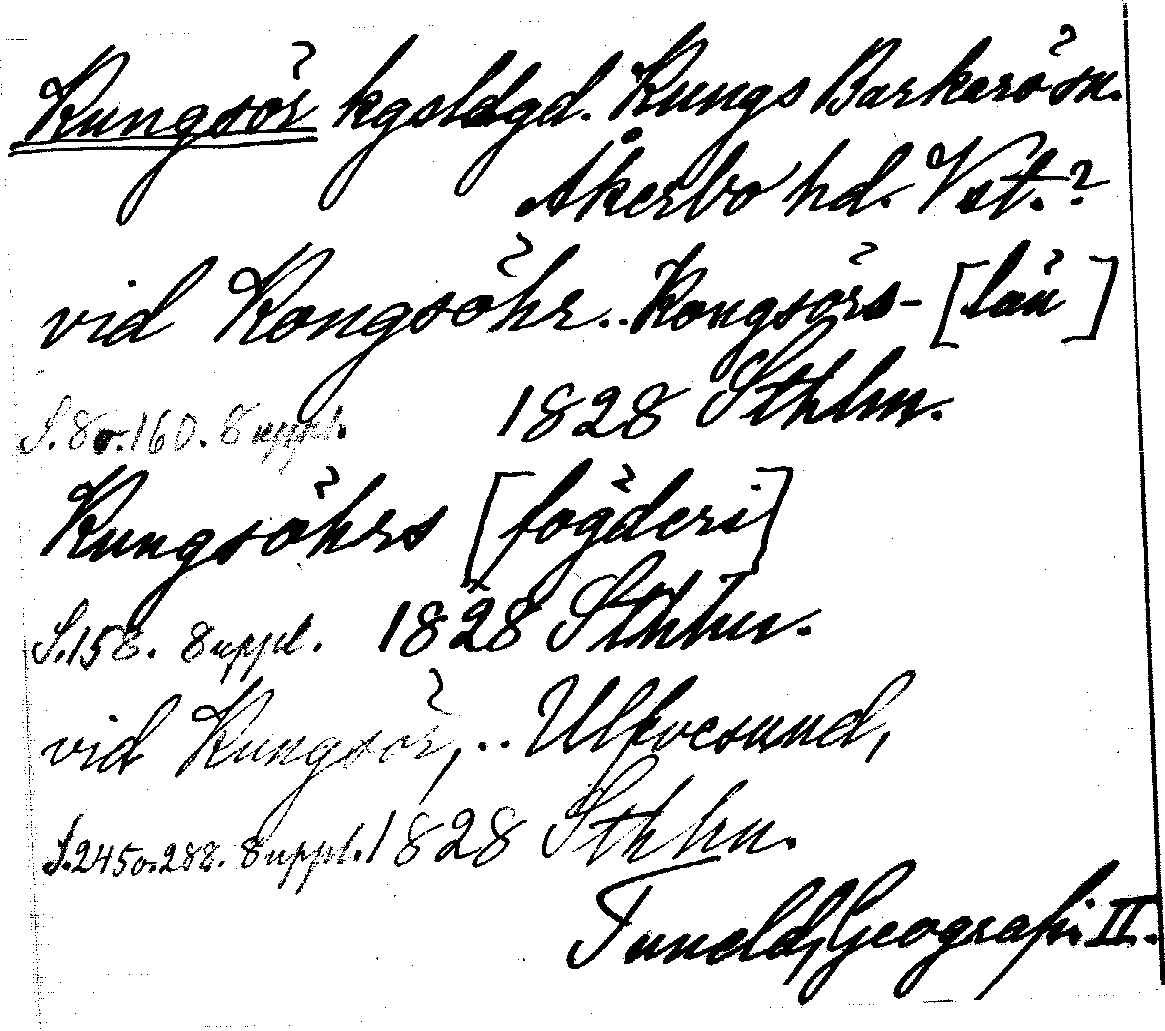 Kungsör kgsldgd. Kungs Barkarö sn.
Åkerbo hd. Vstm.?
vid Kongsöhr.. Kongsörs- [län]
S. 8 o. 160. Suppl. 1828 Sthlm.
Kungsöhrs [fögderi]
S. 158. Suppl. 1828 Sthlm.
vid Kungsör, .. Ulfvesund,
S. 245 o. 288. Suppl. 1828 Sthlm.
Tuneld, Geografi II.